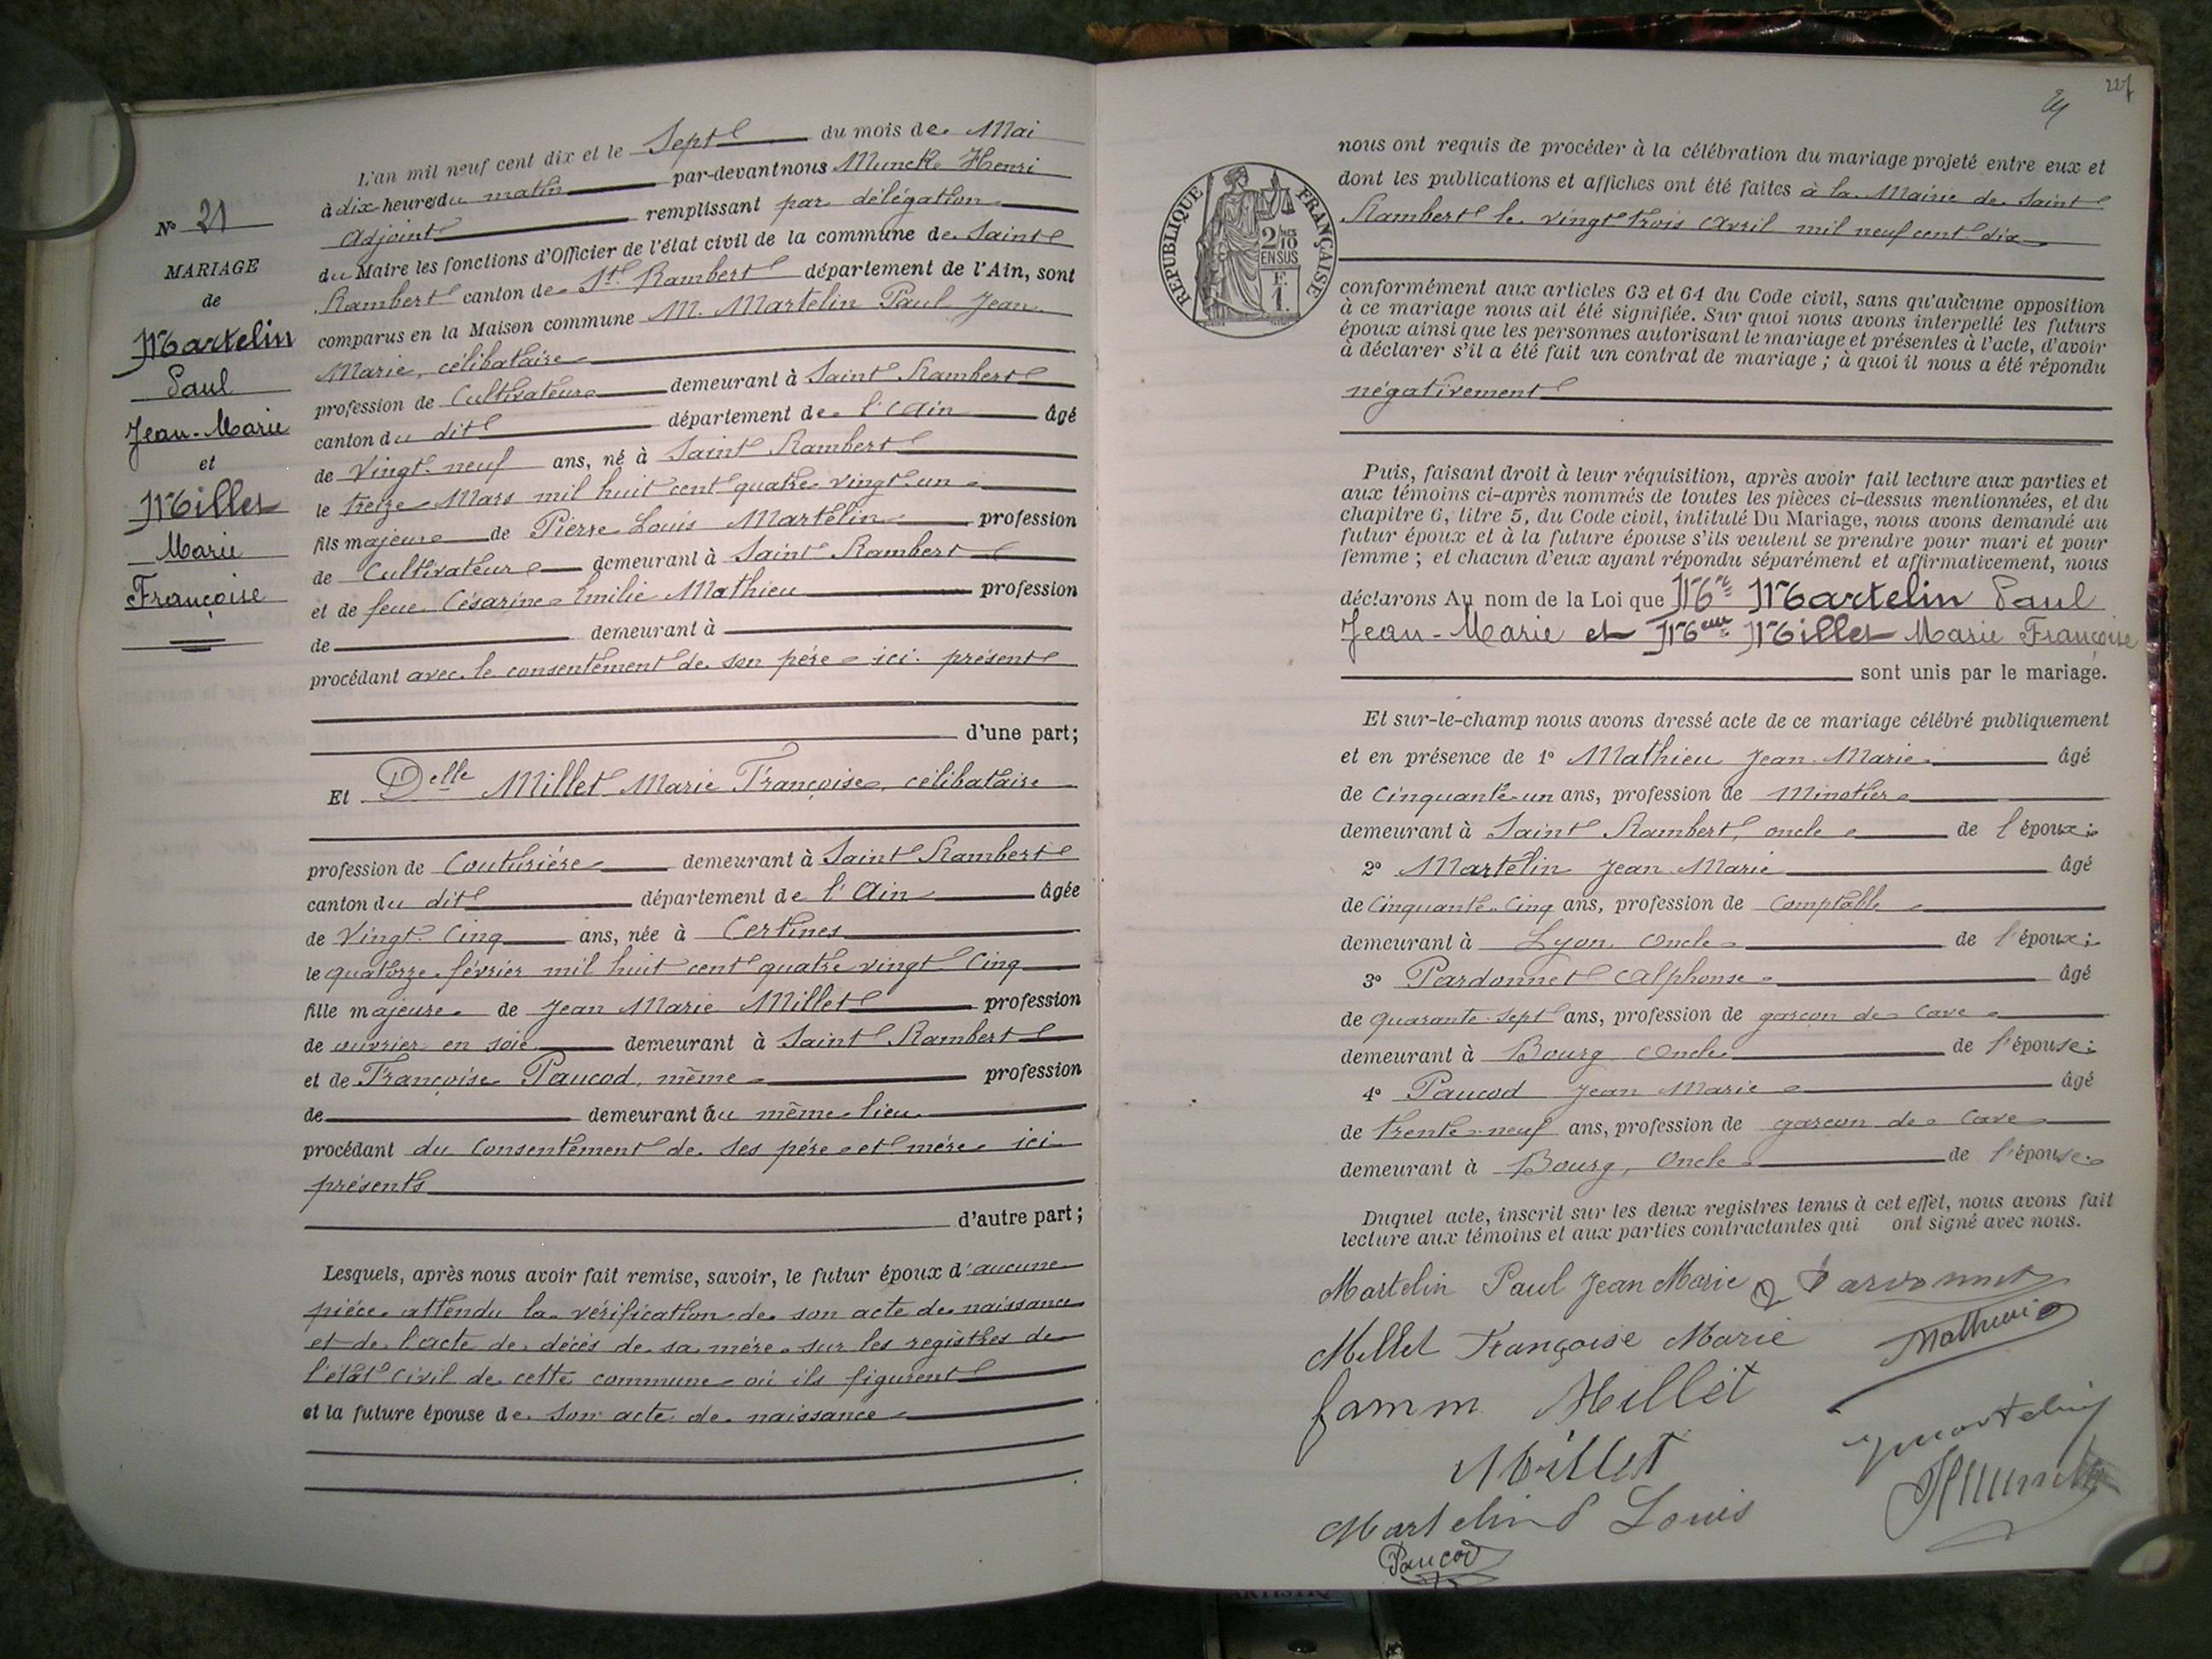 N° 21
MARIAGE
de
Martelin
Paul
Jean-Marie
et
Millet
Marie
Françoise
L'an mil neuf cent dix et le Sept du mois de Mai
à dix heures du matin par-devant nous Munck Henri
Adjoint remplissant par délégation
du Maire les fonctions d'Officier de l'état civil de la commune de Saint
Rambert canton de St. Rambert département de l'Ain, sont
comparus en la Maison commune M. Martelin Paul Jean
Marie, célibataire
profession de Cultivateur demeurant à Saint Rambert
canton du dit département de l'Ain âgé
de Vingt-neuf ans, né à Saint Rambert
le treize Mars mil huit cent quatre vingt un
fils majeur de Pierre Louis Martelin profession
de Cultivateur demeurant à Saint Rambert
et de feue Césarine Emilie Mathieu profession
de demeurant à
procédant avec le consentement de son père ici présent
d'une part;
Et Delle Millet Marie Françoise, célibataire
profession de Couturière demeurant à Saint Rambert
canton du dit département de l'Ain âgée
de Vingt-Cinq ans, née à Certines
le quatorze février mil huit cent quatre vingt Cinq
fille majeure de Jean Marie Millet profession
de ouvrier en soie demeurant à Saint Rambert
et de Françoise Paucod, même profession
de demeurant au même lieu
procédant du Consentement de ses père et mère ici
présents
d'autre part;
Lesquels, après nous avoir fait remise, savoir, le futur époux d'aucune
pièce attendu la vérification de son acte de naissance
et de l'acte de décès de sa mère sur les registres de
l'état civil de cette commune où ils figurent
et la future épouse de son acte de naissance
227
21
RÉPUBLIQUE FRANÇAISE
2/10
EN SUS
F.
1.
nous ont requis de procéder à la célébration du mariage projeté entre eux et
dont les publications et affiches ont été faites à la Mairie de Saint
Rambert le vingt trois Avril mil neuf cent dix
conformément aux articles 63 et 64 du Code civil, sans qu'aucune opposition
à ce mariage nous ait été signifiée. Sur quoi nous avons interpellé les futurs
époux ainsi que les personnes autorisant le mariage et présentes à l'acte, d'avoir
à déclarer s'il a été fait un contrat de mariage ; à quoi il nous a été répondu
négativement
Puis, faisant droit à leur réquisition, après avoir fait lecture aux parties et
aux témoins ci-après nommés de toutes les pièces ci-dessus mentionnées, et du
chapitre 6, titre 5, du Code civil, intitulé Du Mariage, nous avons demandé au
futur époux et à la future épouse s'ils veulent se prendre pour mari et pour
femme ; et chacun d'eux ayant répondu séparément et affirmativement, nous
déclarons Au nom de la Loi que Mr Martelin Paul
Jean-Marie et Melle Millet Marie Françoise
sont unis par le mariage.
Et sur-le-champ nous avons dressé acte de ce mariage célébré publiquement
et en présence de 1° Mathieu Jean Marie âgé
de Cinquante-un ans, profession de Minotier
demeurant à Saint Rambert, oncle de l'époux;
2° Martelin Jean Marie âgé
de Cinquante-Cinq ans, profession de Comptable
demeurant à Lyon Oncle de l'époux;
3° Pardonnet Alphonse âgé
de quarante-sept ans, profession de garçon de Cave
demeurant à Bourg, Oncle de l'épouse;
4° Paucod Jean Marie âgé
de trente-neuf ans, profession de garçon de Cave
demeurant à Bourg, Oncle de l'épouse.
Duquel acte, inscrit sur les deux registres tenus à cet effet, nous avons fait
lecture aux témoins et aux parties contractantes qui ont signé avec nous.
Martelin Paul Jean Marie Pardonnet
Millet Françoise Marie Mathieu
famm Millet
Millet
Martelin
Martelin Louis
Paucod